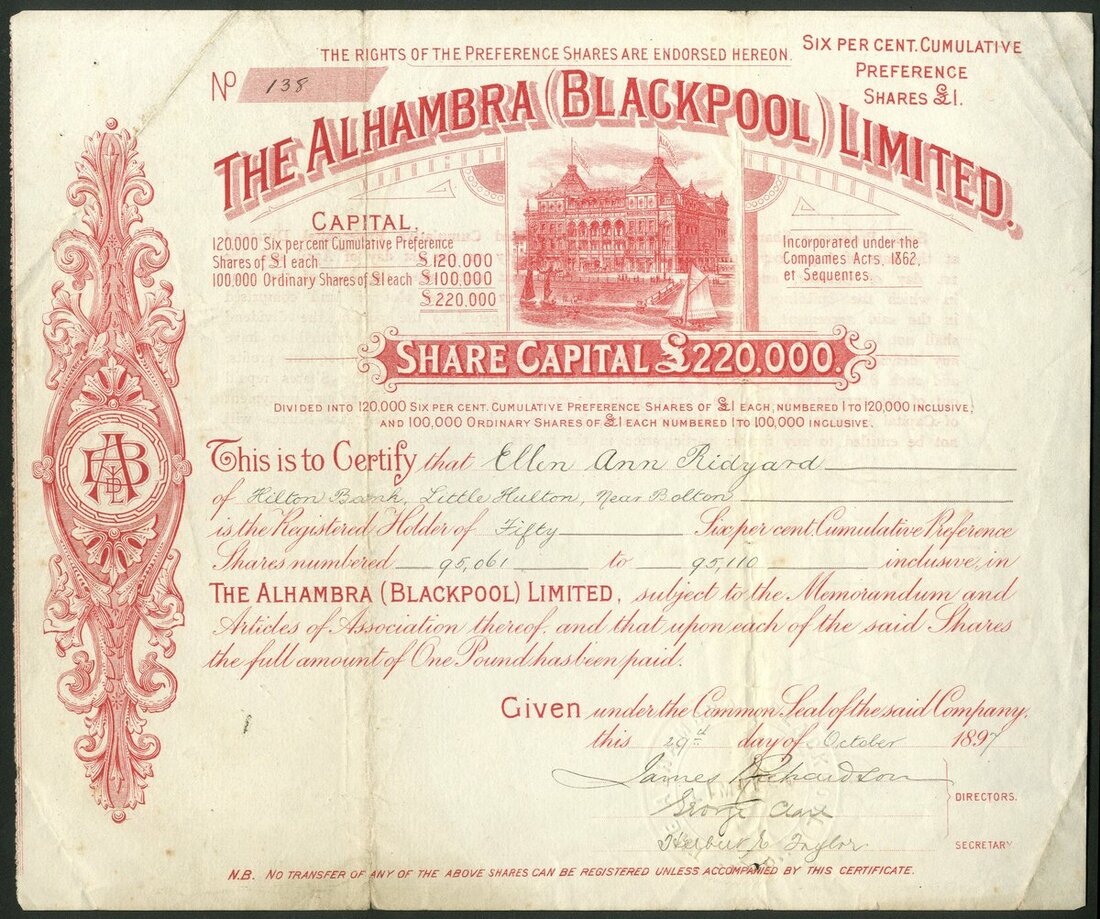 THE RIGHTS OF THE PREFERENCE SHARES ARE ENDORSED HEREON.
SIX PER CENT. CUMULATIVE
PREFERENCE
SHARES £1.
No 138
THE ALHAMBRA (BLACKPOOL) LIMITED.
CAPITAL.
120.000 Six per cent Cumulative Preference
Shares of £1 each £120.000
100,000 Ordinary Shares of £1 each £100.000
£220,000
Incorporated under the
Companies Acts, 1862,
et Sequentes.
SHARE CAPITAL £220.000.
DIVIDED INTO 120.000 SIX PER CENT. CUMULATIVE PREFERENCE SHARES OF £1 EACH, NUMBERED 1 TO 120,000 INCLUSIVE,
AND 100,000 ORDINARY SHARES OF £1 EACH NUMBERED 1 TO 100,000 INCLUSIVE.
This is to Certify that Ellen Ann Ridyard
of Hilton Bank, Little Hulton, Near Bolton
is the Registered Holder of Fifty Six per cent. Cumulative Preference
Shares numbered 95,061 to 95,110 inclusive, in
THE ALHAMBRA (BLACKPOOL) LIMITED, subject to the Memorandum and
Articles of Association thereof, and that upon each of the said Shares
the full amount of One Pound has been paid.
Given under the Common Seal of the said Company,
this 29th day of October 1897
James Richardson
George
DIRECTORS.
Herbert E Taylor
SECRETARY
N.B. NO TRANSFER OF ANY OF THE ABOVE SHARES CAN BE REGISTERED UNLESS ACCOMPANIED BY THIS CERTIFICATE.